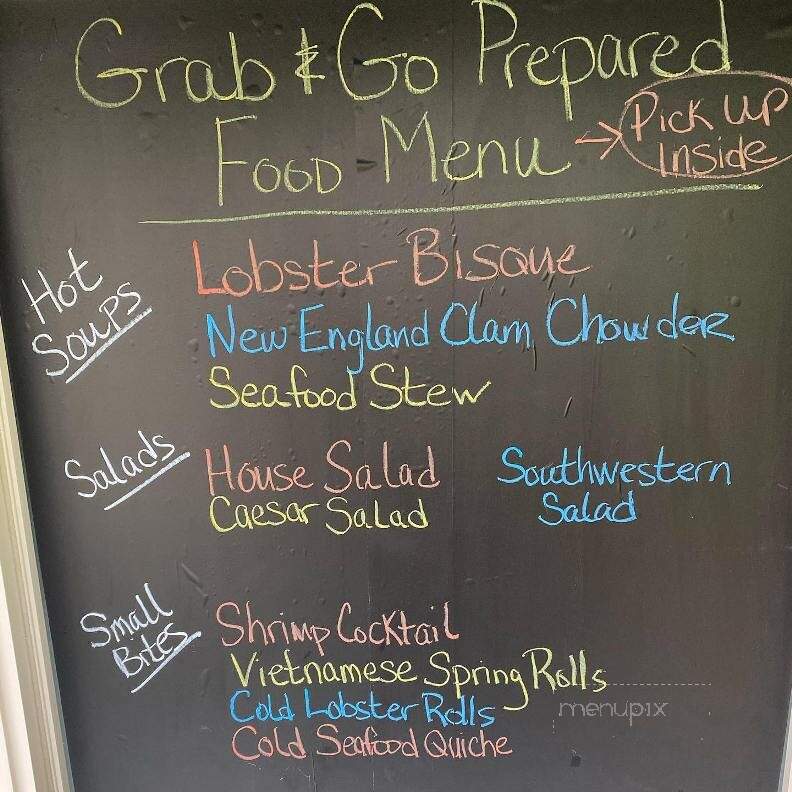 Grab & Go Prepared
Food Menu → Pick Up
Inside
Hot
Soups
Lobster Bisque
New England Clam Chowder
Seafood Stew
Salads
House Salad
Caesar Salad
Southwestern
Salad
Small
Bites
Shrimp Cocktail
Vietnamese Spring Rolls
Cold Lobster Rolls
Cold Seafood Quiche
menupix